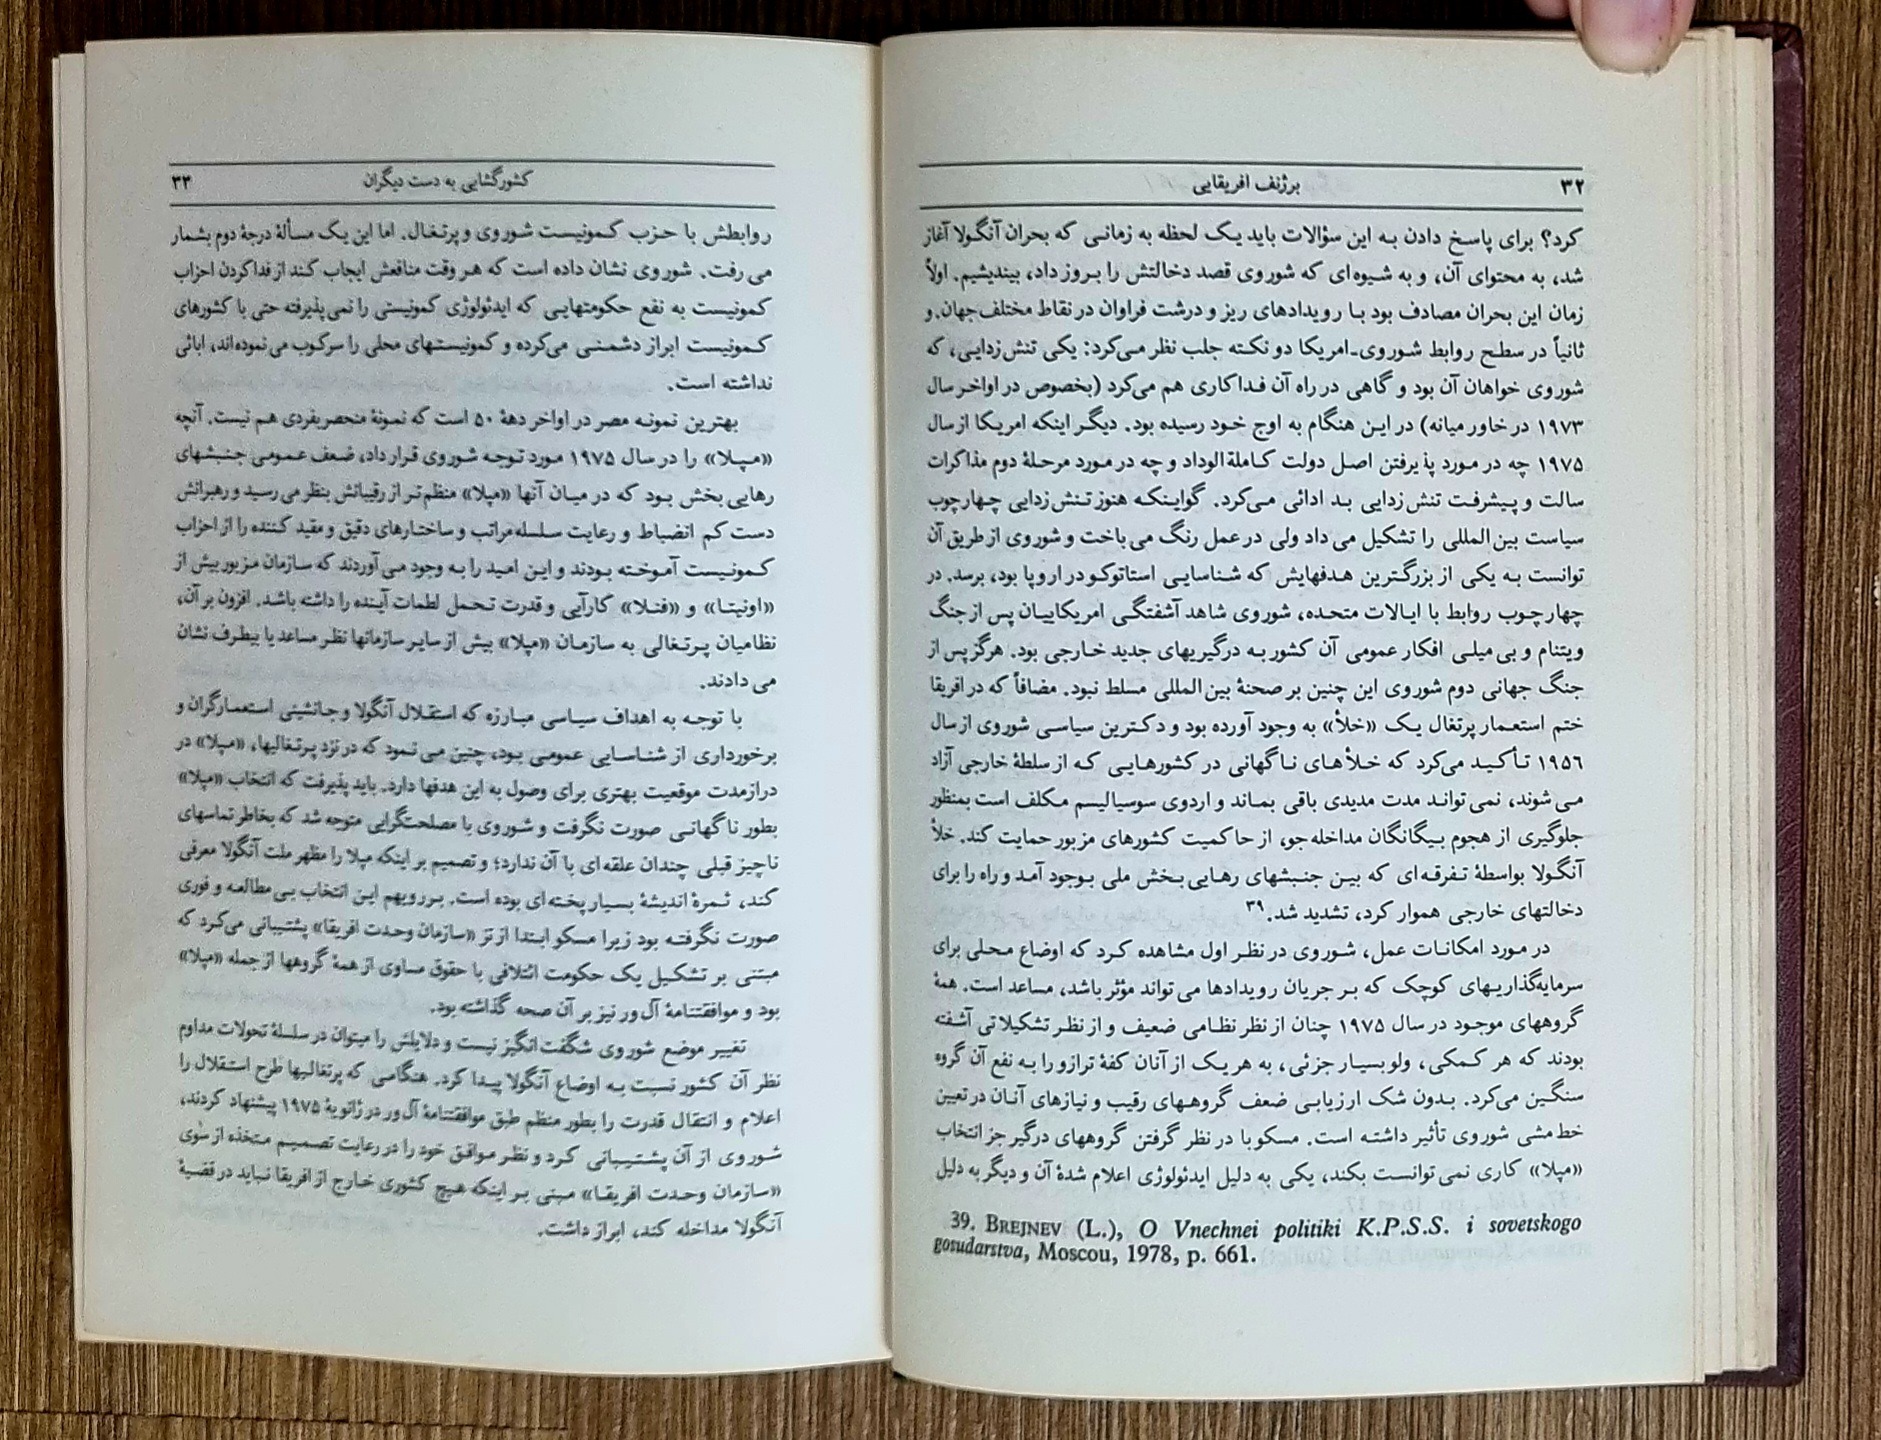 ۳۲
برژنف افریقایی
کرد؟ برای پاسخ دادن به این سؤالات باید یک لحظه به زمانی که بحران آنگولا آغاز
شد، به محتوای آن، و به شیوه‌ای که شوروی قصد دخالتش را بروز داد، بیندیشیم. اولاً
زمان این بحران مصادف بود با رویدادهای ریز و درشت فراوان در نقاط مختلف جهان. و
ثانیاً در سطح روابط شوروی-امریکا دو نکته جلب نظر می‌کرد: یکی تنش‌زدایی، که
شوروی خواهان آن بود و گاهی در راه آن فداکاری هم می‌کرد (بخصوص در اواخر سال
۱۹۷۳ در خاور میانه) در این هنگام به اوج خود رسیده بود. دیگر اینکه امریکا از سال
۱۹۷۵ چه در مورد پذیرفتن اصل دولت کاملة‌الوداد و چه در مورد مرحلهٔ دوم مذاکرات
سالت و پیشرفت تنش‌زدایی بد ادائی می‌کرد. گواینکه هنوز تنش‌زدایی چهارچوب
سیاست بین‌المللی را تشکیل می‌داد ولی در عمل رنگ می‌باخت و شوروی از طریق آن
توانست به یکی از بزرگترین هدفهایش که شناسایی استاتوکو در اروپا بود، برسد. در
چهارچوب روابط با ایالات متحده، شوروی شاهد آشفتگی امریکاییان پس از جنگ
ویتنام و بی‌میلی افکار عمومی آن کشور به درگیریهای جدید خارجی بود. هرگز پس از
جنگ جهانی دوم شوروی این چنین بر صحنهٔ بین‌المللی مسلط نبود. مضافاً که در افریقا
ختم استعمار پرتغال یک «خلأ» به وجود آورده بود و دکترین سیاسی شوروی از سال
۱۹۵۶ تأکید می‌کرد که خلأهای ناگهانی در کشورهایی که از سلطهٔ خارجی آزاد
می‌شوند، نمی‌تواند مدت مدیدی باقی بماند و اردوی سوسیالیسم مکلف است بمنظور
جلوگیری از هجوم بیگانگان مداخله‌جو، از حاکمیت کشورهای مزبور حمایت کند. خلأ
آنگولا بواسطهٔ تفرقه‌ای که بین جنبشهای رهایی‌بخش ملی بوجود آمد و راه را برای
دخالتهای خارجی هموار کرد، تشدید شد.۳۹
در مورد امکانات عمل، شوروی در نظر اول مشاهده کرد که اوضاع محلی برای
سرمایه‌گذاریهای کوچک که بر جریان رویدادها می‌تواند مؤثر باشد، مساعد است. همهٔ
گروههای موجود در سال ۱۹۷۵ چنان از نظر نظامی ضعیف و از نظر تشکیلاتی آشفته
بودند که هر کمکی، ولو بسیار جزئی، به هر یک از آنان کفهٔ ترازو را به نفع آن گروه
سنگین می‌کرد. بدون شک ارزیابی ضعف گروههای رقیب و نیازهای آنان در تعیین
خط مشی شوروی تأثیر داشته است. مسکو با در نظر گرفتن گروههای درگیر جز انتخاب
«مپلا» کاری نمی‌توانست بکند، یکی به دلیل ایدئولوژی اعلام شدهٔ آن و دیگر به دلیل
39. BREJNEV (L.), O Vnechnei politiki K.P.S.S. i sovetskogo
gosudarstva, Moscou, 1978, p. 661.
کشورگشایی به دست دیگران
۳۳
روابطش با حزب کمونیست شوروی و پرتغال. اما این یک مسألهٔ درجهٔ دوم بشمار
می‌رفت. شوروی نشان داده است که هر وقت منافعش ایجاب کند از فدا کردن احزاب
کمونیست به نفع حکومتهایی که ایدئولوژی کمونیستی را نمی‌پذیرفته حتی با کشورهای
کمونیست ابراز دشمنی می‌کرده و کمونیستهای محلی را سرکوب می‌نموده‌اند، ابائی
نداشته است.
بهترین نمونه مصر در اواخر دههٔ ۵۰ است که نمونهٔ منحصربفردی هم نیست. آنچه
«مپلا» را در سال ۱۹۷۵ مورد توجه شوروی قرار داد، ضعف عمومی جنبشهای
رهایی بخش بود که در میان آنها «مپلا» منظم‌تر از رقیبانش بنظر می‌رسید و رهبرانش
دست کم انضباط و رعایت سلسله‌مراتب و ساختارهای دقیق و مقید کننده را از احزاب
کمونیست آموخته بودند و این امید را به وجود می‌آوردند که سازمان مزبور بیش از
«اونیتا» و «فنلا» کارآیی و قدرت تحمل لطمات آینده را داشته باشد. افزون بر آن،
نظامیان پرتغالی به سازمان «مپلا» بیش از سایر سازمانها نظر مساعد یا بیطرف نشان
می‌دادند.
با توجه به اهداف سیاسی مبارزه که استقلال آنگولا و جانشینی استعمارگران و
برخورداری از شناسایی عمومی بود، چنین می‌نمود که در نزد پرتغالیها، «مپلا» در
درازمدت موقعیت بهتری برای وصول به این هدفها دارد. باید پذیرفت که انتخاب «مپلا»
بطور ناگهانی صورت نگرفت و شوروی با مصلحتگرایی متوجه شد که بخاطر تماسهای
ناچیز قبلی چندان علقه‌ای با آن ندارد؛ و تصمیم بر اینکه مپلا را مظهر ملت آنگولا معرفی
کند، ثمرهٔ اندیشهٔ بسیار پخته‌ای بوده است. بررویهم این انتخاب بی‌مطالعه و فوری
صورت نگرفته بود زیرا مسکو ابتدا از تز «سازمان وحدت افریقا» پشتیبانی می‌کرد که
مبتنی بر تشکیل یک حکومت ائتلافی با حقوق مساوی از همهٔ گروهها از جمله «مپلا»
بود و موافقتنامهٔ آل ور نیز بر آن صحه گذاشته بود.
تغییر موضع شوروی شگفت‌انگیز نیست و دلایلش را میتوان در سلسلهٔ تحولات مداوم
نظر آن کشور نسبت به اوضاع آنگولا پیدا کرد. هنگامی که پرتغالیها طرح استقلال را
اعلام و انتقال قدرت را بطور منظم طبق موافقتنامهٔ آل ور در ژانویهٔ ۱۹۷۵ پیشنهاد کردند،
شوروی از آن پشتیبانی کرد و نظر موافق خود را در رعایت تصمیم متخذه از سوی
«سازمان وحدت افریقا» مبنی بر اینکه هیچ کشوری خارج از افریقا نباید در قضیهٔ
آنگولا مداخله کند، ابراز داشت.